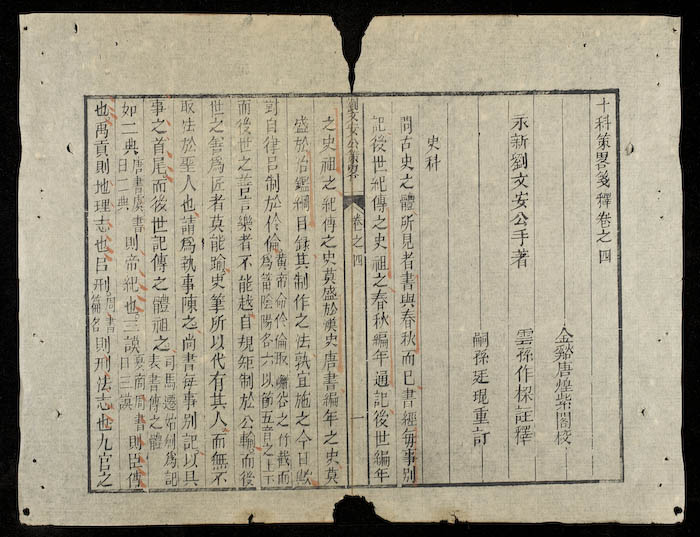 十科策畧箋釋卷之四
永新劉文安公手著
金谿唐煌紫閣校
雲孫作樑註釋
嗣孫廷琨重訂
史科
問古史之體所見者書與春秋而已書經每事別
記後世紀傳之史祖之春秋編年通記後世編年
劉文安公策畧 卷之四 一
之史祖之紀傳之史莫盛於漢史唐書編年之史莫
盛於治鑑綱目錄其制作之法孰宜施之今日歟
對自律呂制於伶倫黃帝命伶倫取嶰谷之竹截而爲筩陰陽各六以節五音之上下
而後世之善言樂者不能越自規矩制於公輸而後
世之善爲匠者莫能踰史筆所以代有其人而無不
取法於聖人也請爲執事陳之尚書每事別記以具
事之首尾而後世記傳之體祖之司馬遷始創爲記表書傳之體
如二典唐書虞書曰二典則帝紀也三謨夏商周書曰三謨則臣傳
也禹貢則地理志也呂刑周書篇名則刑法志也九官之